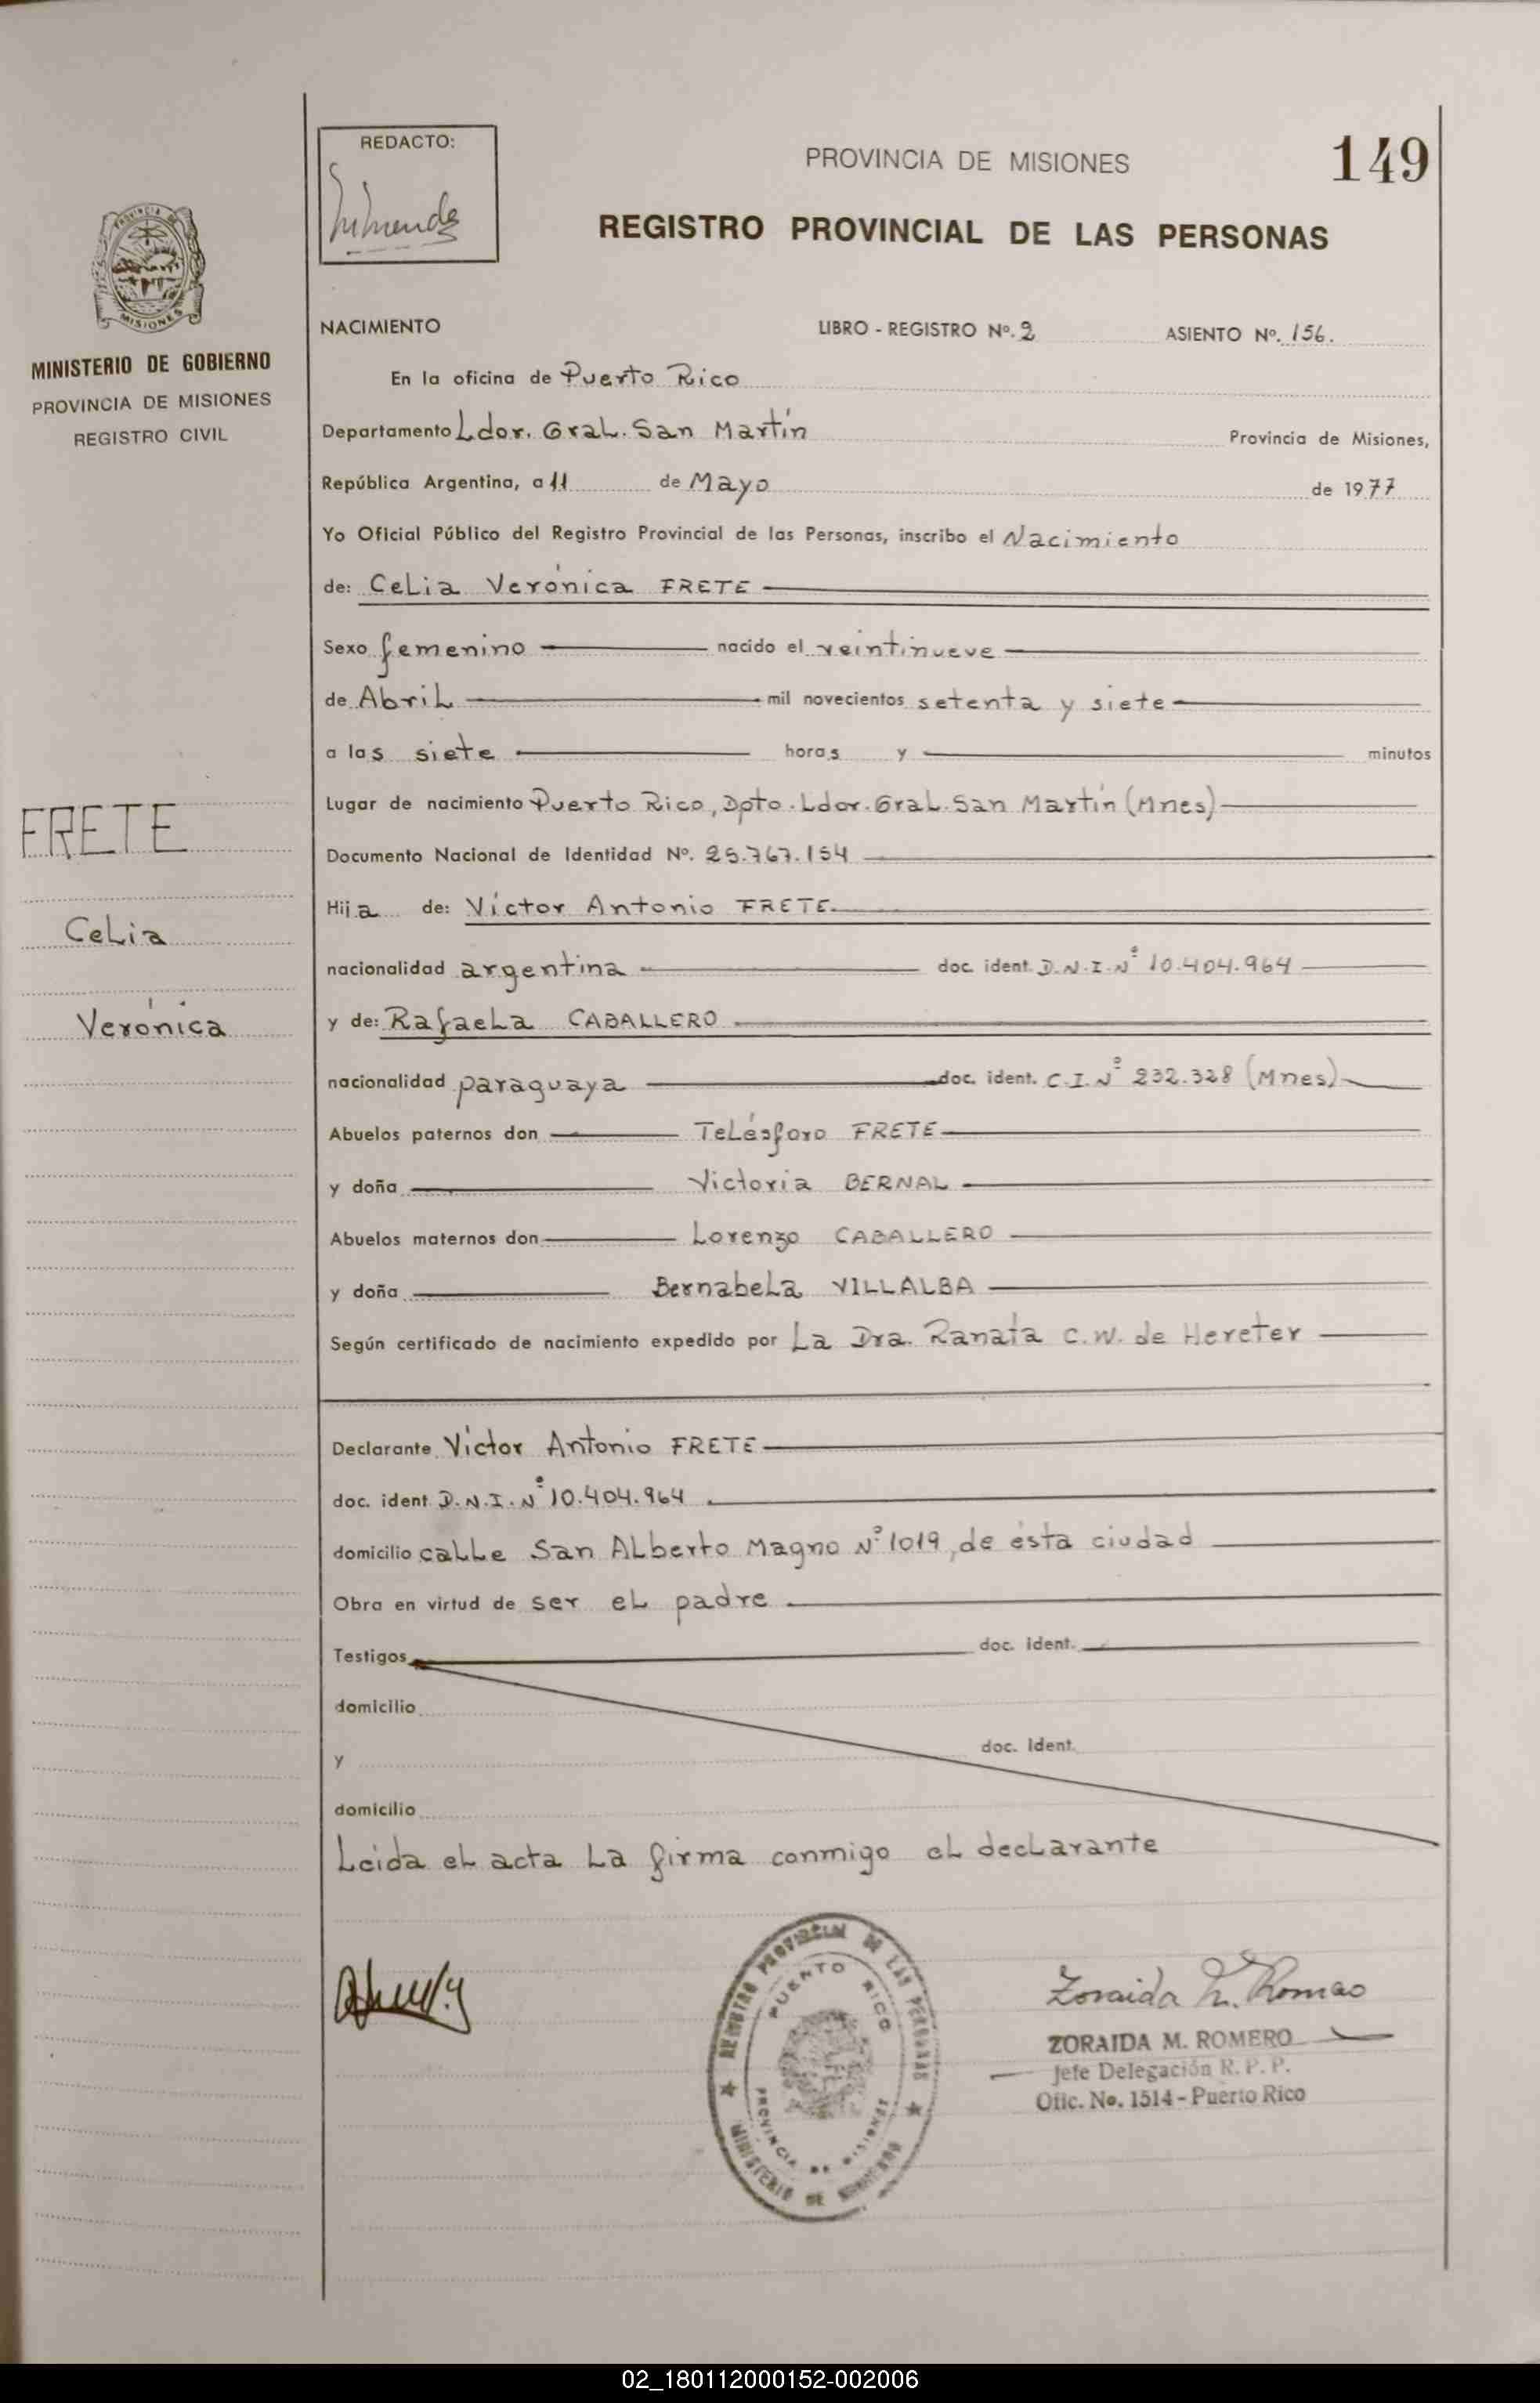 REDACTO:
PROVINCIA DE MISIONES
149
REGISTRO PROVINCIAL DE LAS PERSONAS
PROVINCIA DE
MISIONES
MINISTERIO DE GOBIERNO
PROVINCIA DE MISIONES
REGISTRO CIVIL
NACIMIENTO LIBRO - REGISTRO Nº. 2 ASIENTO Nº. 156.
En la oficina de Puerto Rico
Departamento Ldor. Gral. San Martín Provincia de Misiones,
República Argentina, a 11 de Mayo de 1977
Yo Oficial Público del Registro Provincial de las Personas, inscribo el Nacimiento
de: Celia Verónica FRETE
Sexo femenino nacido el veintinueve
de Abril mil novecientos setenta y siete
a las siete horas y minutos
Lugar de nacimiento Puerto Rico, Dpto. Ldor. Gral. San Martín (Mnes)
Documento Nacional de Identidad Nº. 25.767.154
Hija de: Víctor Antonio FRETE
nacionalidad argentina doc. ident. D.N.I. Nº 10.404.964
y de: Rafaela CABALLERO
nacionalidad paraguaya doc. ident. C.I. Nº 232.328 (Mnes)
Abuelos paternos don Telésforo FRETE
y doña Victoria BERNAL
Abuelos maternos don Lorenzo CABALLERO
y doña Bernabela VILLALBA
Según certificado de nacimiento expedido por La Dra. Ranata C.W. de Hereter
FRETE
Celia
Verónica
Declarante Víctor Antonio FRETE
doc. ident. D.N.I. Nº 10.404.964
domicilio calle San Alberto Magno Nº 1019, de ésta ciudad
Obra en virtud de ser el padre
Testigos doc. ident.
domicilio
y doc. ident.
domicilio
Leida el acta la firma conmigo el declarante
REGISTRO PROVINCIAL DE LAS PERSONAS
PUERTO RICO
PROVINCIA DE MISIONES
MINISTERIO DE GOBIERNO
Zoraida M. Romero
ZORAIDA M. ROMERO
Jefe Delegación R. P. P.
Ofic. No. 1514 - Puerto Rico
02_180112000152-002006